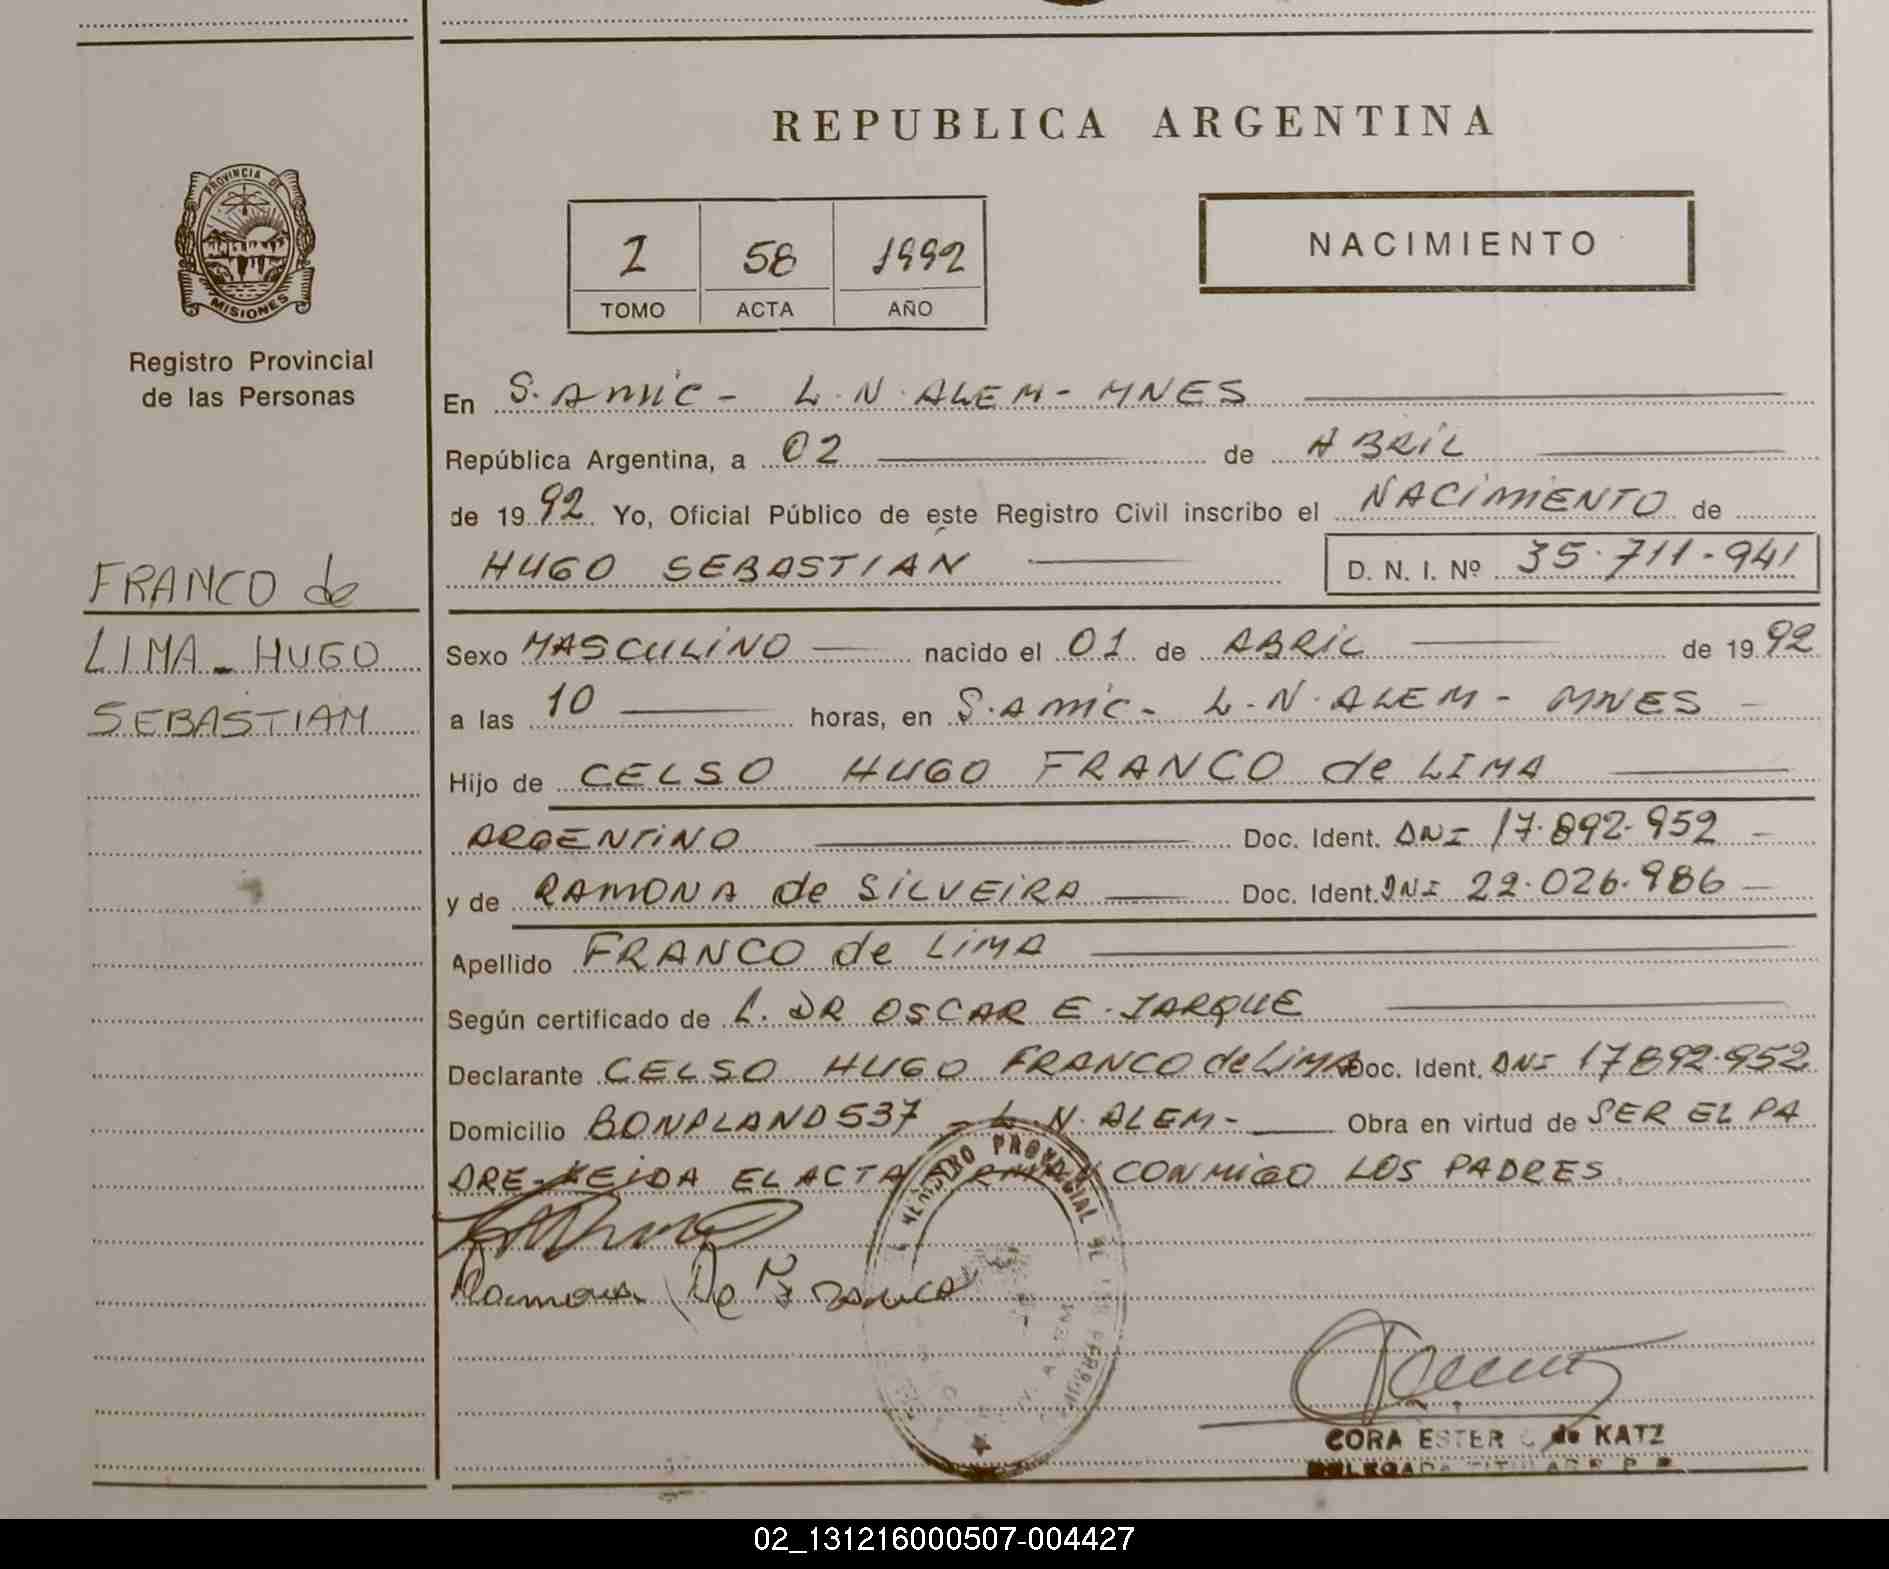 REPUBLICA ARGENTINA
PROVINCIA DE
MISIONES
Registro Provincial
de las Personas
2 58 1992
TOMO ACTA AÑO
NACIMIENTO
En S. Amic - L. N. ALEM - MNES
República Argentina, a 02 de ABRIL
de 1992 Yo, Oficial Público de este Registro Civil inscribo el NACIMIENTO de
HUGO SEBASTIAN D. N. I. Nº 35.711.941
FRANCO de
LIMA - HUGO
SEBASTIAN
Sexo MASCULINO nacido el 01 de ABRIL de 1992
a las 10 horas, en S. Amic - L. N. ALEM - MNES -
Hijo de CELSO HUGO FRANCO de LIMA
ARGENTINO Doc. Ident. DNI 17.892.952 -
y de RAMONA de SILVEIRA Doc. Ident. DNI 22.026.986 -
Apellido FRANCO de LIMA
Según certificado de L. DR OSCAR E. JARQUE
Declarante CELSO HUGO FRANCO de LIMA Doc. Ident. DNI 17892.952
Domicilio BONPLAND 537 - L. N. ALEM - Obra en virtud de SER EL PA
DRE - LEIDA EL ACTA CONMIGO LOS PADRES
REGISTRO PROVINCIAL DE
Ramona De Franco
CORA ESTER de KATZ
DELEGADA TITULAR R. P. P.
02_131216000507-004427